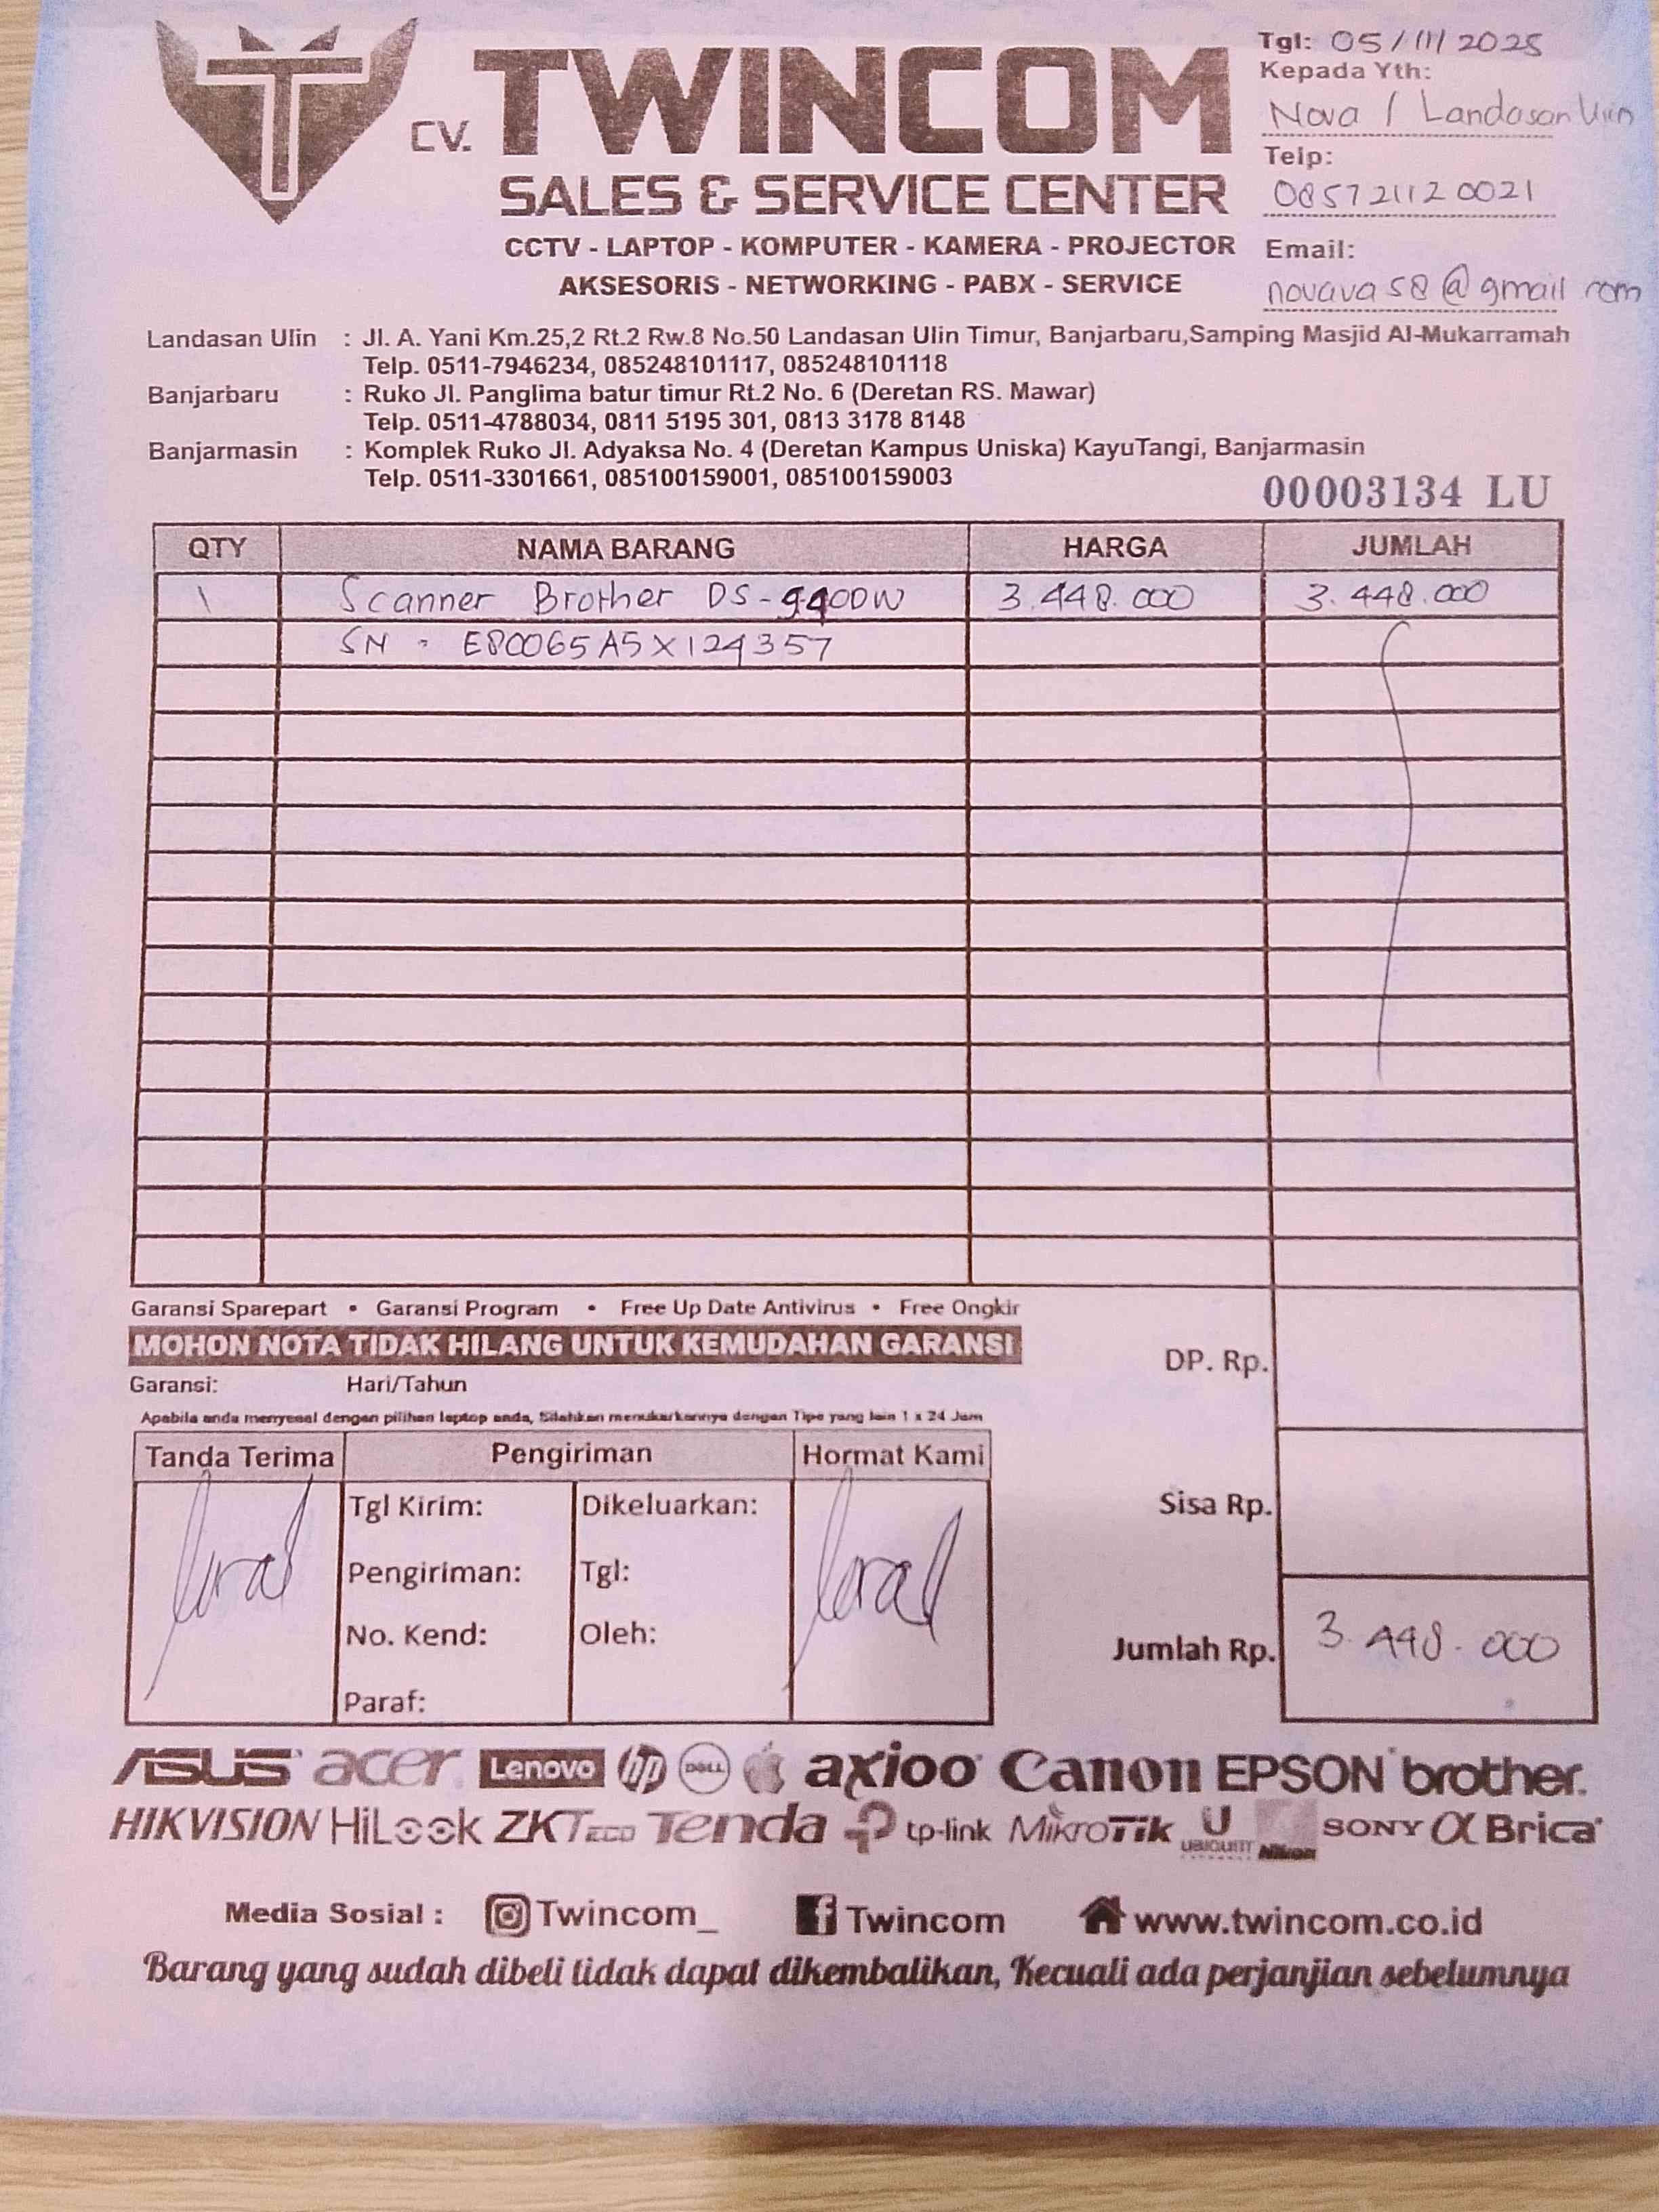 CV. TWINCOM
SALES & SERVICE CENTER
CCTV - LAPTOP - KOMPUTER - KAMERA - PROJECTOR
AKSESORIS - NETWORKING - PABX - SERVICE
Tgl: 05/11/2025
Kepada Yth:
Nova / Landasan Ulin
Telp:
085721120021
Email:
novava58@gmail com
Landasan Ulin : Jl. A. Yani Km.25,2 Rt.2 Rw.8 No.50 Landasan Ulin Timur, Banjarbaru,Samping Masjid Al-Mukarramah
Telp. 0511-7946234, 085248101117, 085248101118
Banjarbaru : Ruko Jl. Panglima batur timur Rt.2 No. 6 (Deretan RS. Mawar)
Telp. 0511-4788034, 0811 5195 301, 0813 3178 8148
Banjarmasin : Komplek Ruko Jl. Adyaksa No. 4 (Deretan Kampus Uniska) KayuTangi, Banjarmasin
Telp. 0511-3301661, 085100159001, 085100159003
00003134 LU
QTY NAMA BARANG HARGA JUMLAH
1 Scanner Brother DS-940DW 3.448.000 3.448.000
SN : E80065A5X124357
Garansi Sparepart • Garansi Program • Free Up Date Antivirus • Free Ongkir
MOHON NOTA TIDAK HILANG UNTUK KEMUDAHAN GARANSI
Garansi: Hari/Tahun
Apabila anda menyesal dengan pilihan laptop anda, Silahkan menukarkannya dengan Tipe yang lain 1 x 24 Jam
DP. Rp.
Sisa Rp.
Jumlah Rp. 3.448.000
Tanda Terima Pengiriman Hormat Kami
Tgl Kirim: Dikeluarkan:
Pengiriman: Tgl:
No. Kend: Oleh:
Paraf:
ASUS acer Lenovo hp DELL axioo Canon EPSON brother.
HIKVISION HiLook ZKTeco Tenda tp-link MikroTik UBIQUITI Nikon SONY α Brica
Media Sosial : Twincom_ Twincom www.twincom.co.id
Barang yang sudah dibeli tidak dapat dikembalikan, Kecuali ada perjanjian sebelumnya